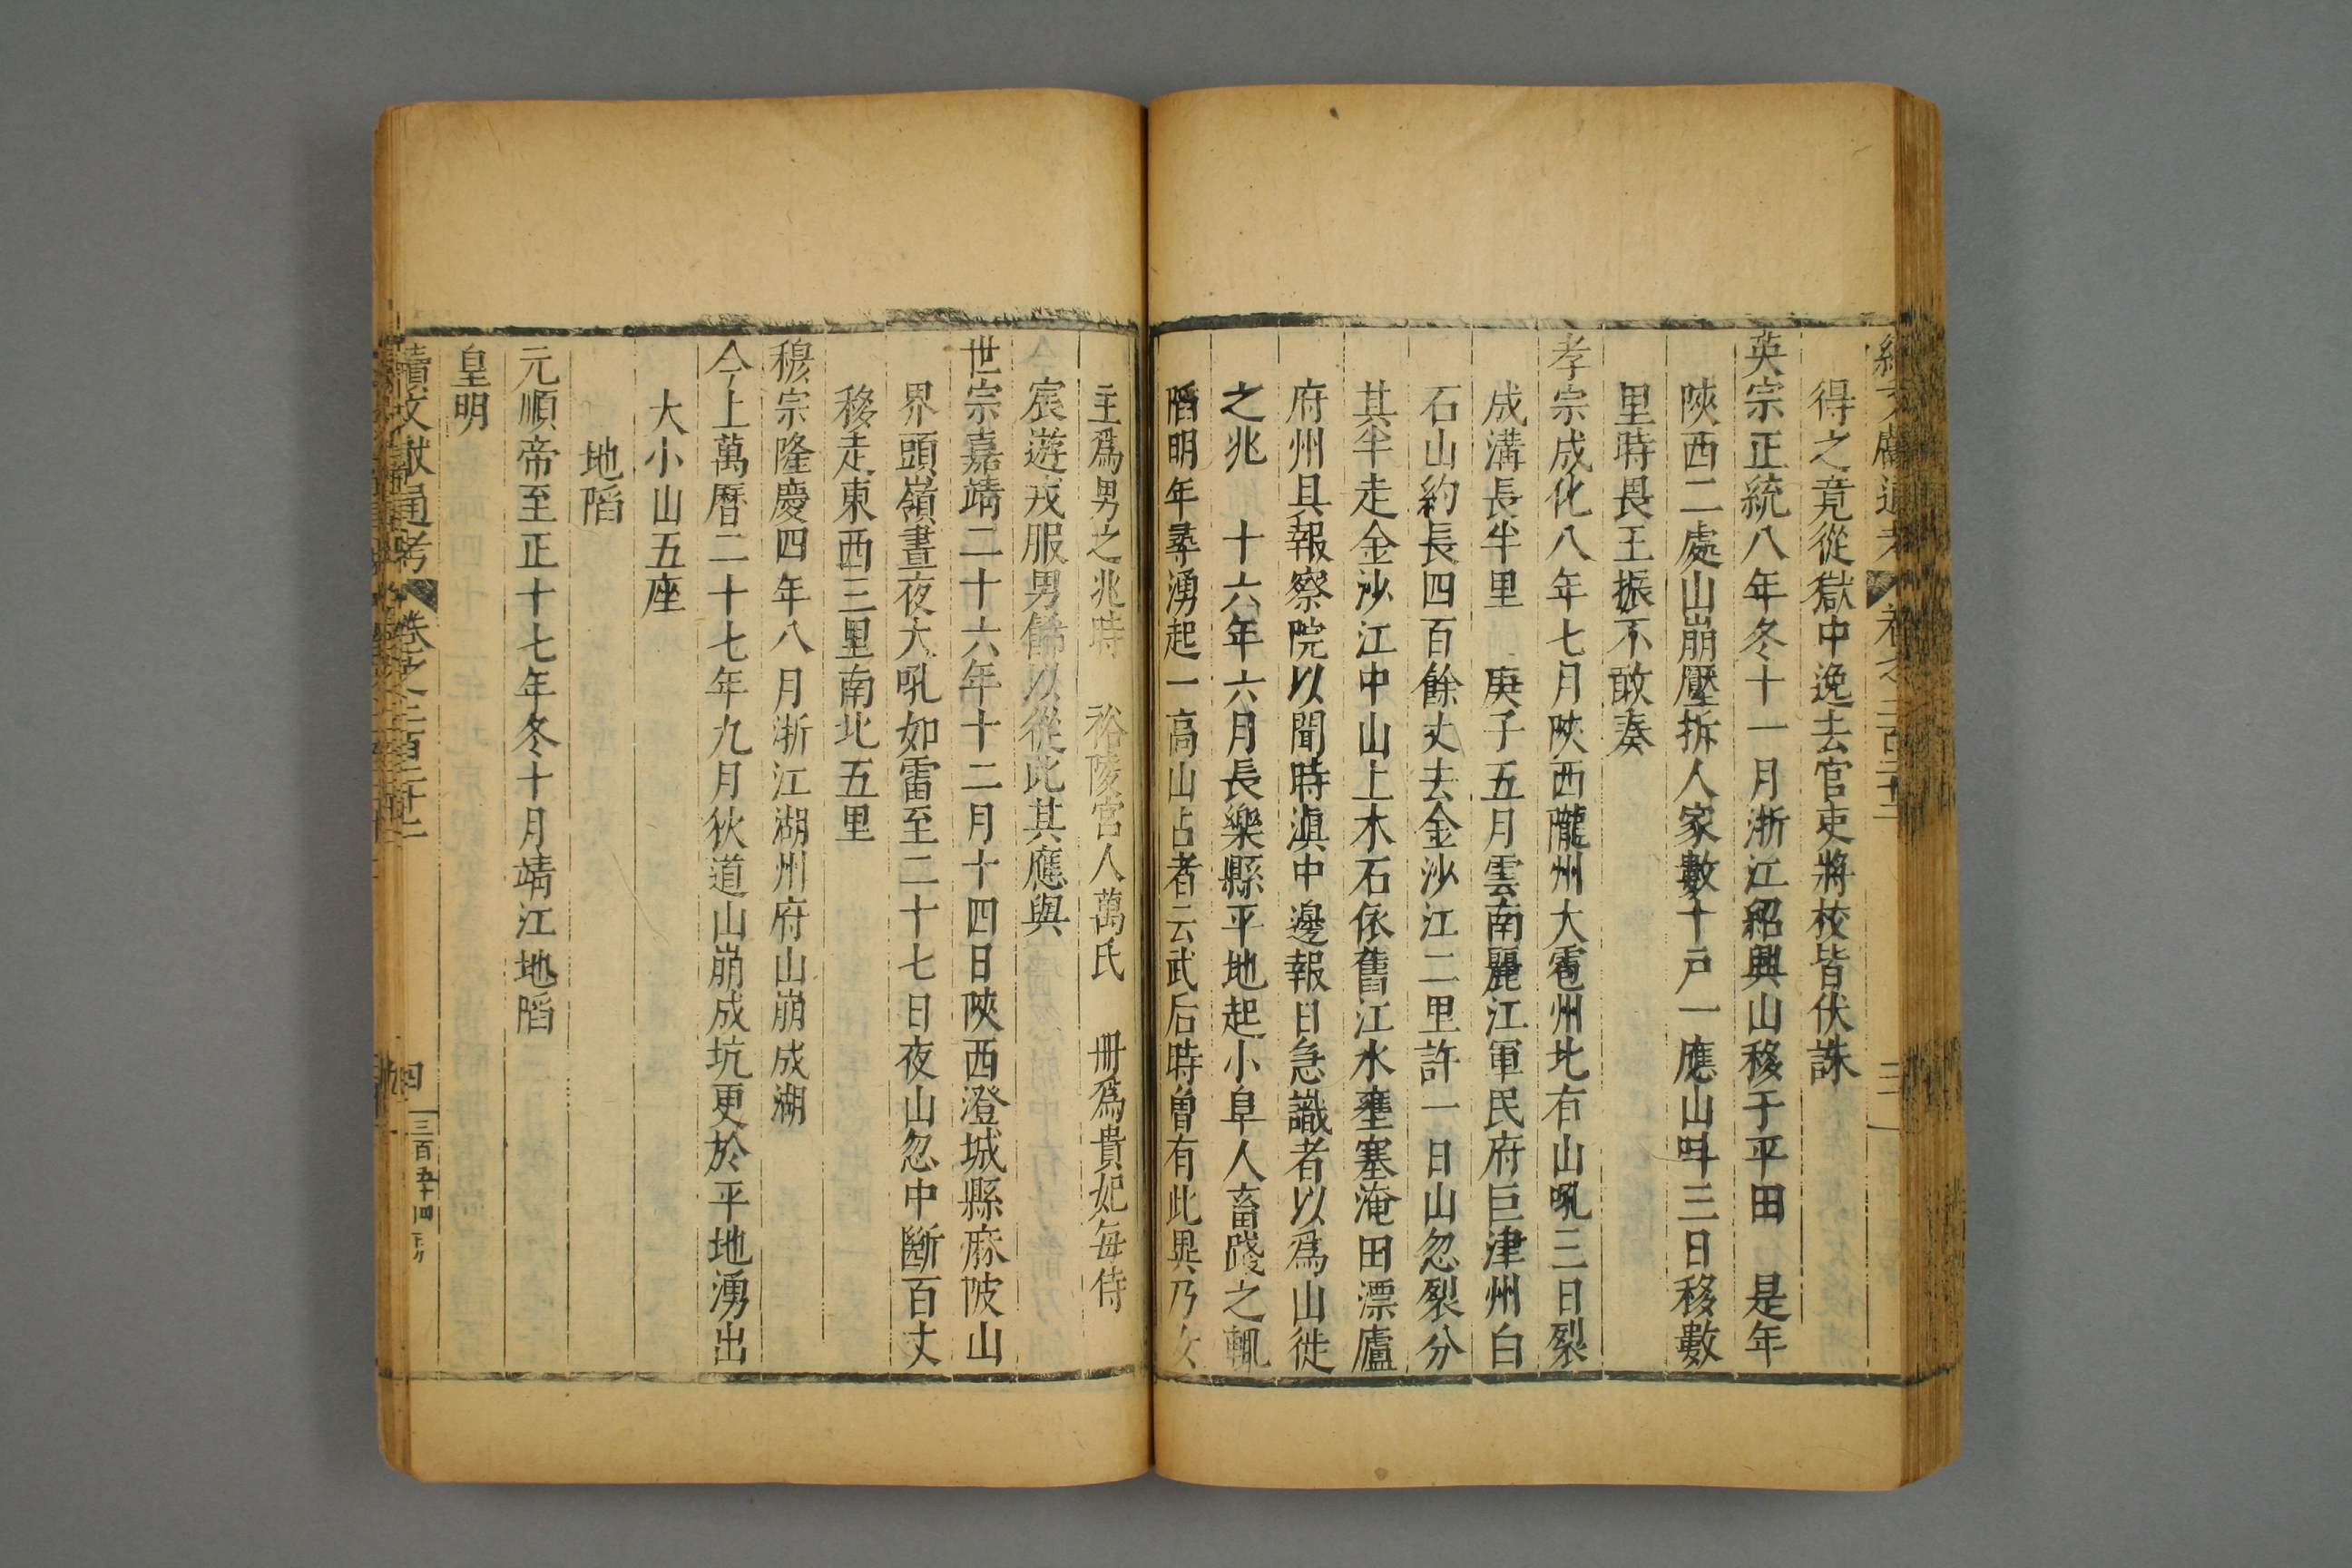 得之竟從獄中逸去官吏將校皆伏誅
英宗正統八年冬十一月浙江紹興山移于平田 是年
陜西二處山崩壓拆人家數十戸一應山呌三日移數
里時畏王振不敢奏
孝宗成化八年七月陜西隴州大雹州北有山吼三日裂
成溝長半里 庚子五月雲南麗江軍民府巨津州白
石山約長四百餘丈去金沙江二里許一日山忽裂分
其半走金沙江中山上木石依舊江水壅塞淹田漂廬
府州具報察院以聞時滇中邊報日急識者以爲山徙
之兆 十六年六月長樂縣平地起小阜人畜踐之輒
䧟明年㝷湧起一高山占者云武后時曽有此異乃女
主爲男之兆時 裕陵宮人萬氏 冊爲貴妃每侍
宸遊戎服男飾以從此其應與
世宗嘉靖二十六年十二月十四日陜西澄城縣麻陂山
界頭嶺晝夜大吼如雷至二十七日夜山忽中斷百丈
移走東西三里南北五里
穆宗隆慶四年八月浙江湖州府山崩成湖
今上萬曆二十七年九月狄道山崩成坑更於平地湧出
大小山五座
地䧟
元順帝至正十七年冬十月靖江地䧟
皇明
續文獻通考 卷之二百二十二